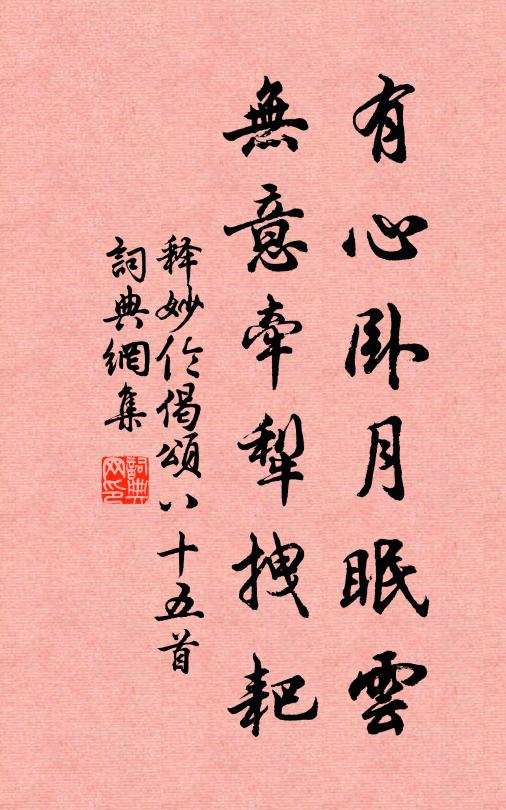 有心卧月眠雲
無意牽犁拽耙
释妙伦偈頌八十五首
詞典網集
詞典网印